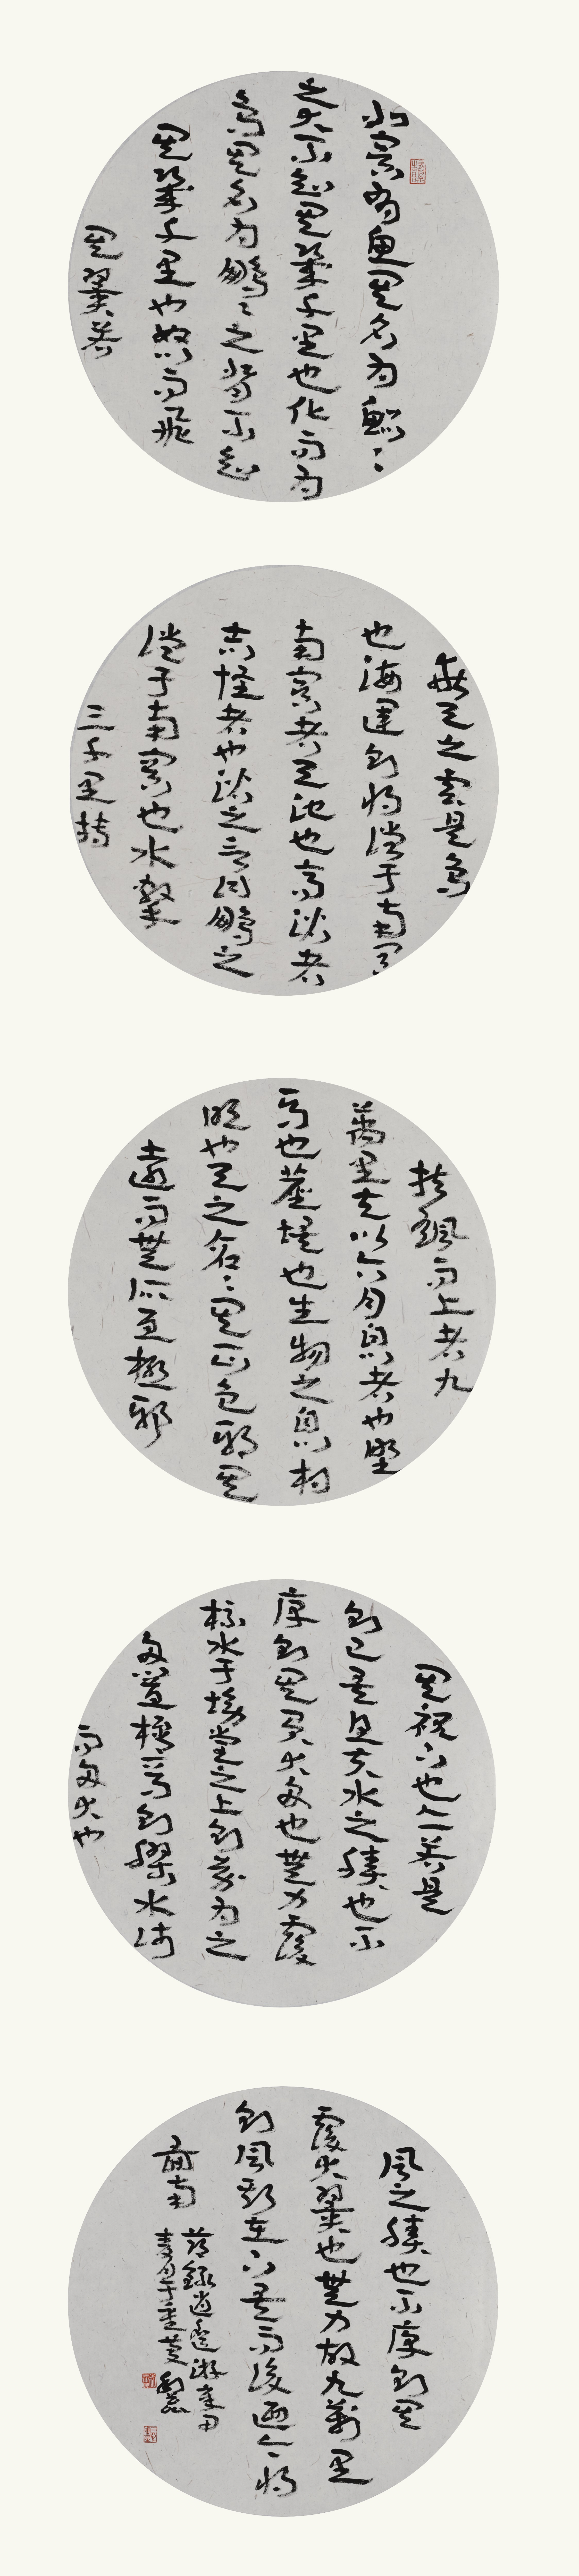 北冥有魚其名為鯤〻
之大不知其幾千里也化而為
鳥其名為鵬〻之背不知
其幾千里也怒而飛
其翼若
垂天之雲是鳥
也海運則將徙于南冥
南冥者天池也齊諧者
志怪者也諧之言曰鵬之
徙于南冥也水擊
三千里摶
扶颻而上者九
萬里去以六月息者也野
馬也塵埃也生物之息以相
吹也天之蒼〻其正色邪其
遠而無所至極邪
其視下也亦若是
則已矣且夫水之積也不
厚則其負大舟也無力覆
杯水于坳堂之上則芥為之
舟置杯焉則膠水淺
而舟大也
風之積也不厚則其
覆大翼也無力故九萬里
則風斯在下矣而後迺今將
圖南
節錄逍遙游